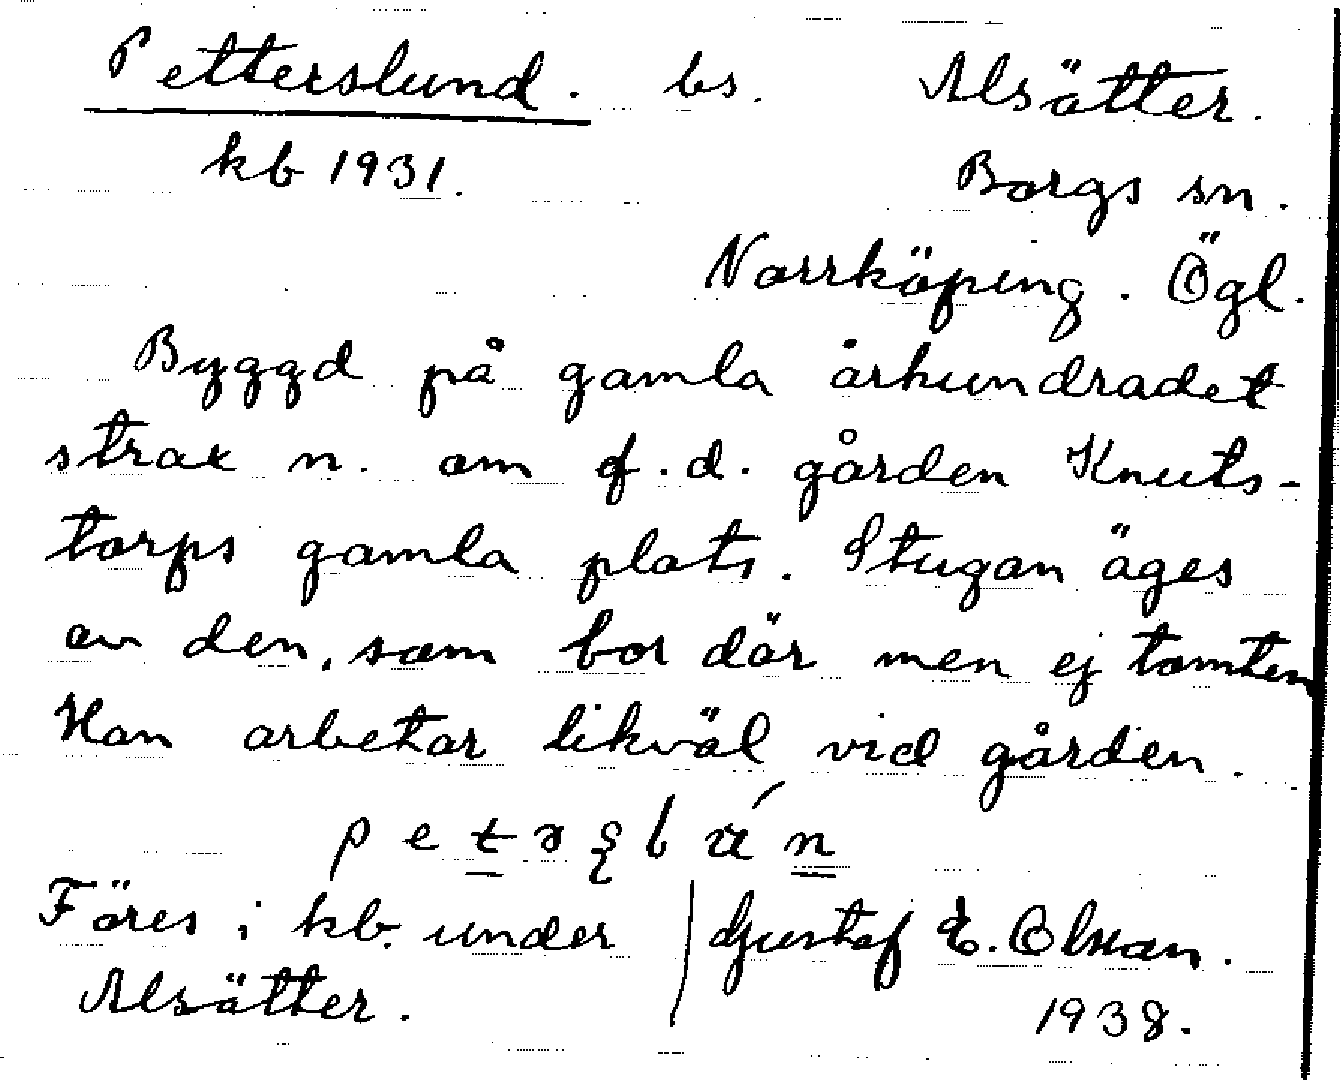 Petterslund. bs. Alsätter.
kb 1931. Borgs sn.
Norrköping. Ögl.
Byggd på gamla århundradet
strax n. om f.d. gården Knuts-
torps gamla plats. Stugan äges
av den, som bor där men ej tomten
Han arbetar likväl vid gården.
Föres i kb. under
Alsätter.
Gustaf E. Olsson.
1938.